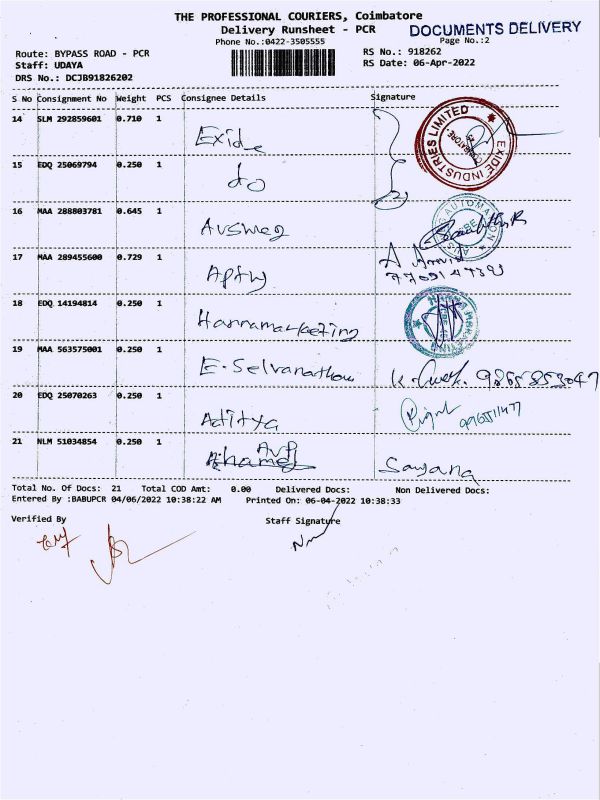 THE PROFESSIONAL COURIERS, Coimbatore
Delivery Runsheet - PCR
DOCUMENTS DELIVERY
Phone No.:0422-3505555
Page No.:2
Route: BYPASS ROAD - PCR
RS No.: 918262
Staff: UDAYA
RS Date: 06-Apr-2022
DRS No.: DCJB91826202
S No Consignment No Weight PCS Consignee Details Signature
14 SLM 292859601 0.710 1 Exide
EXIDE INDUSTRIES LIMITED
15 EDQ 25069794 0.250 1 do
16 MAA 288803781 0.645 1
AUTOMATION
17 MAA 289455600 0.729 1 A Aravid
18 EDQ 14194814 0.250 1 Hannamarketing
19 MAA 563575001 0.250 1 E. Selvanathan 9865853047
20 EDQ 25070263 0.250 1 Aditya
21 NLM 51034854 0.250 1 Sanjana
Total No. Of Docs: 21 Total COD Amt: 0.00 Delivered Docs: Non Delivered Docs:
Entered By :BABUPCR 04/06/2022 10:38:22 AM Printed On: 06-04-2022 10:38:33
Verified By Staff Signature